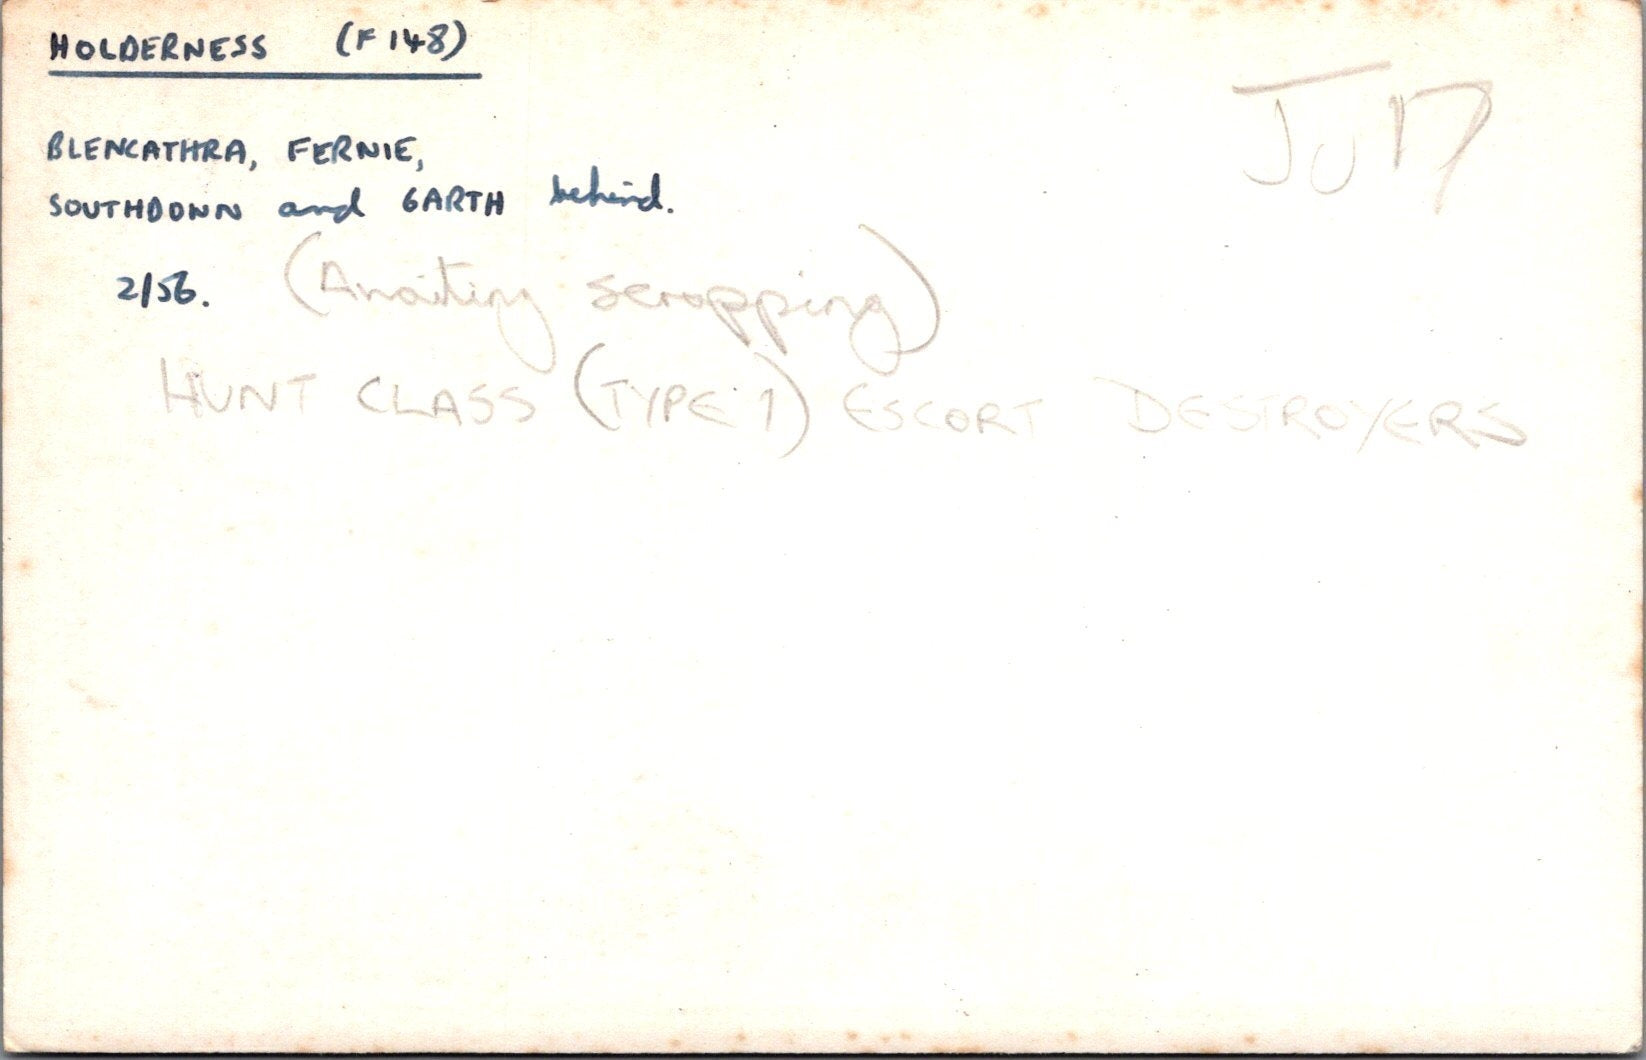 HOLDERNESS (F 148)
BLENCATHRA, FERNIE,
SOUTHDOWN and GARTH behind.
2/56. (Awaiting scrapping)
HUNT CLASS (TYPE 1) ESCORT DESTROYERS